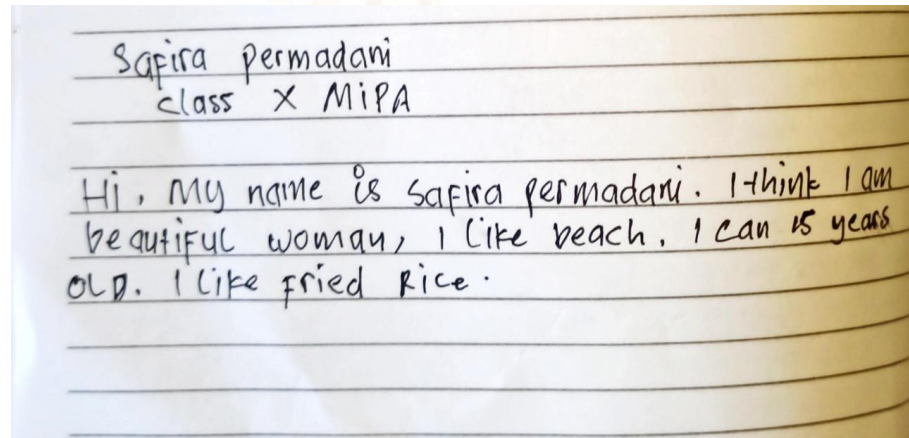 Safira permadani
class X MiPA
Hi, My name is safira permadani. I think I am
beautiful woman, I like beach. I can 15 years
OLD. I like Fried Rice.